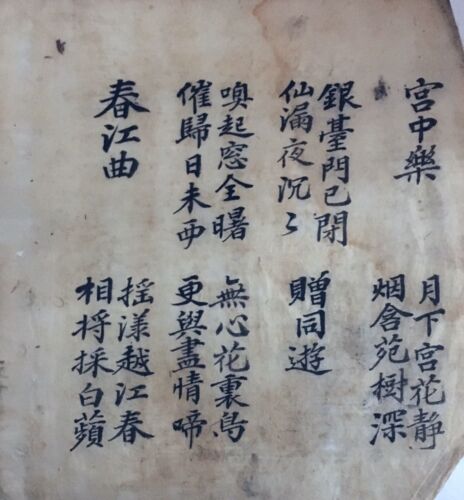 宮中樂
月下宮花靜
烟含苑樹深
銀臺門已閉
仙漏夜沉〻
贈同遊
喚起窓全曙
催歸日未西
無心花裏鳥
更與盡情啼
春江曲
搖漾越江春
相將採白蘋